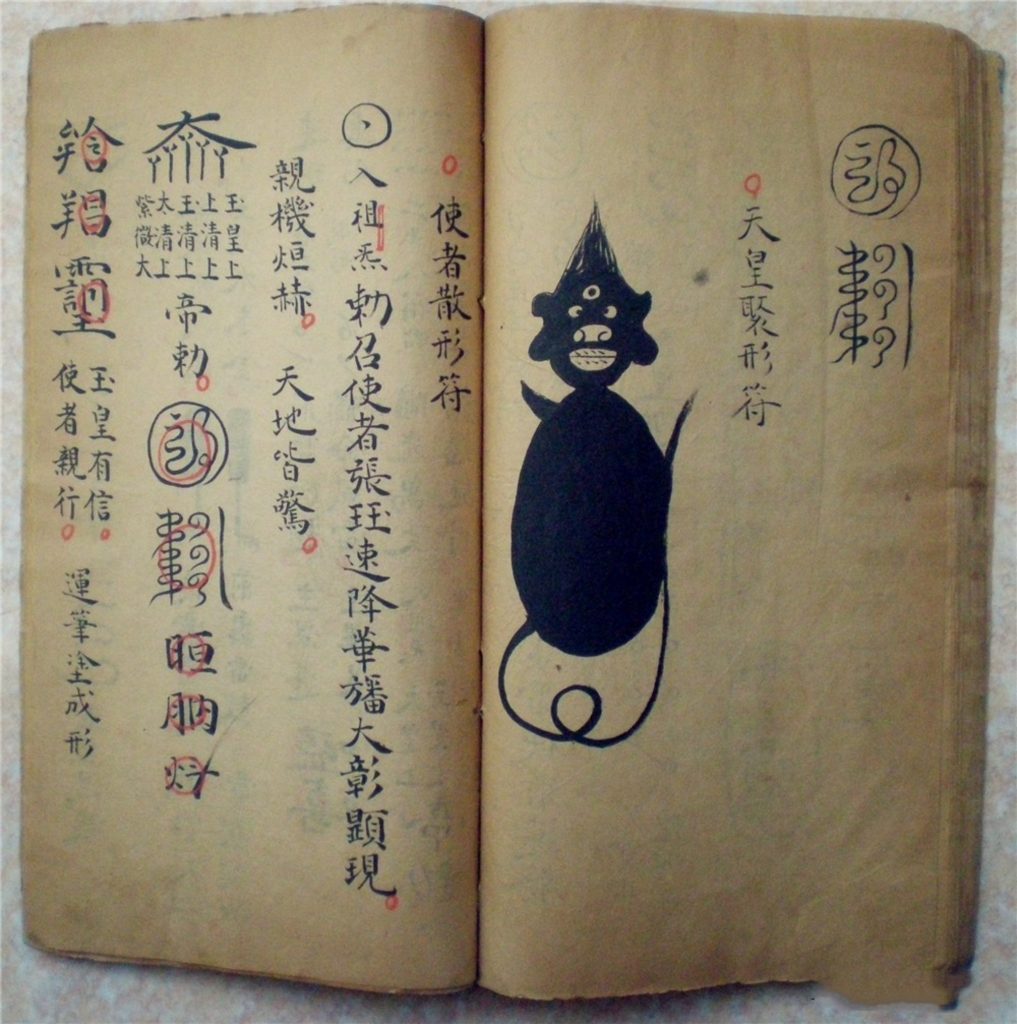 天皇聚形符
使者散形符
入祖炁勅召使者張珏速降華旛大彰顯現
親機烜赫 天地皆驚
玉皇上
上清上
玉清上
太清上
紫微大
帝勅
玉皇有信
使者親行
運筆塗成形